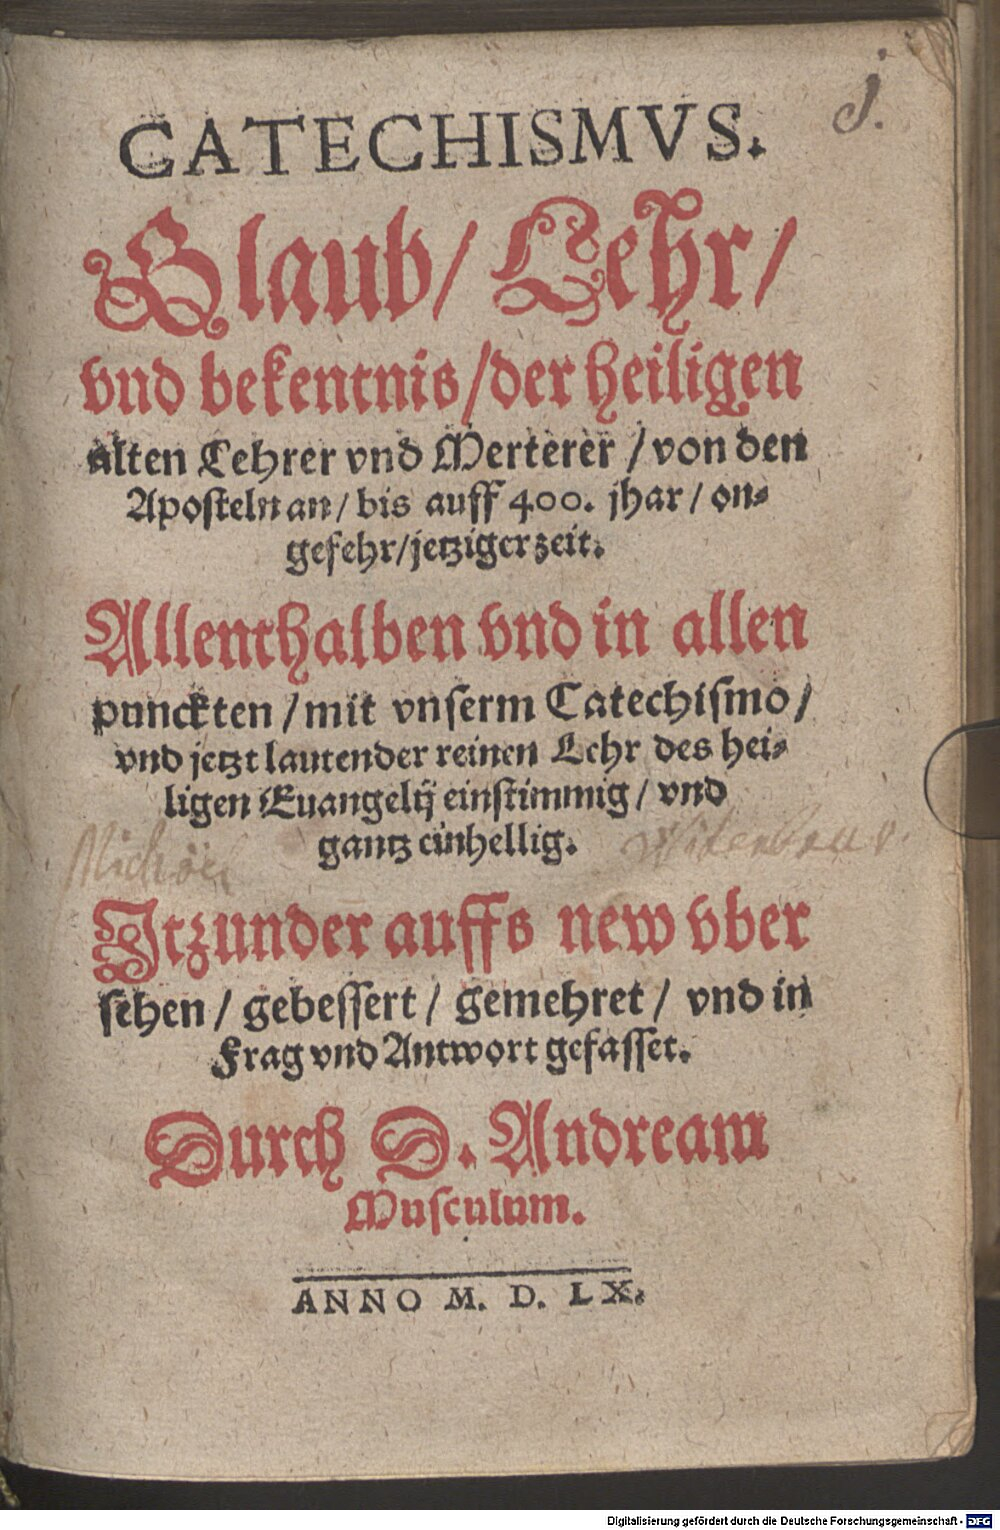 j.
CATECHISMVS.
Glaub/ Lehr/
vnd bekentnis/der heiligen
alten Lehrer vnd Merterer/von den
Aposteln an/ bis auff 400. jhar/ on⸗
gefehr/jetziger zeit.
Allenthalben vnd in allen
punckten/mit vnserm Catechismo/
vnd jetzt lautender reinen Lehr des hei⸗
ligen Euangelij einstimmig/ vnd
gantz einhellig.
Itzunder auffs new vber
sehen/ gebessert/ gemehret/ vnd in
Frag vnd Antwort gefasset.
Durch D. Andream
Musculum.
ANNO M. D. LX.
Digitalisierung gefördert durch die Deutsche Forschungsgemeinschaft - DFG